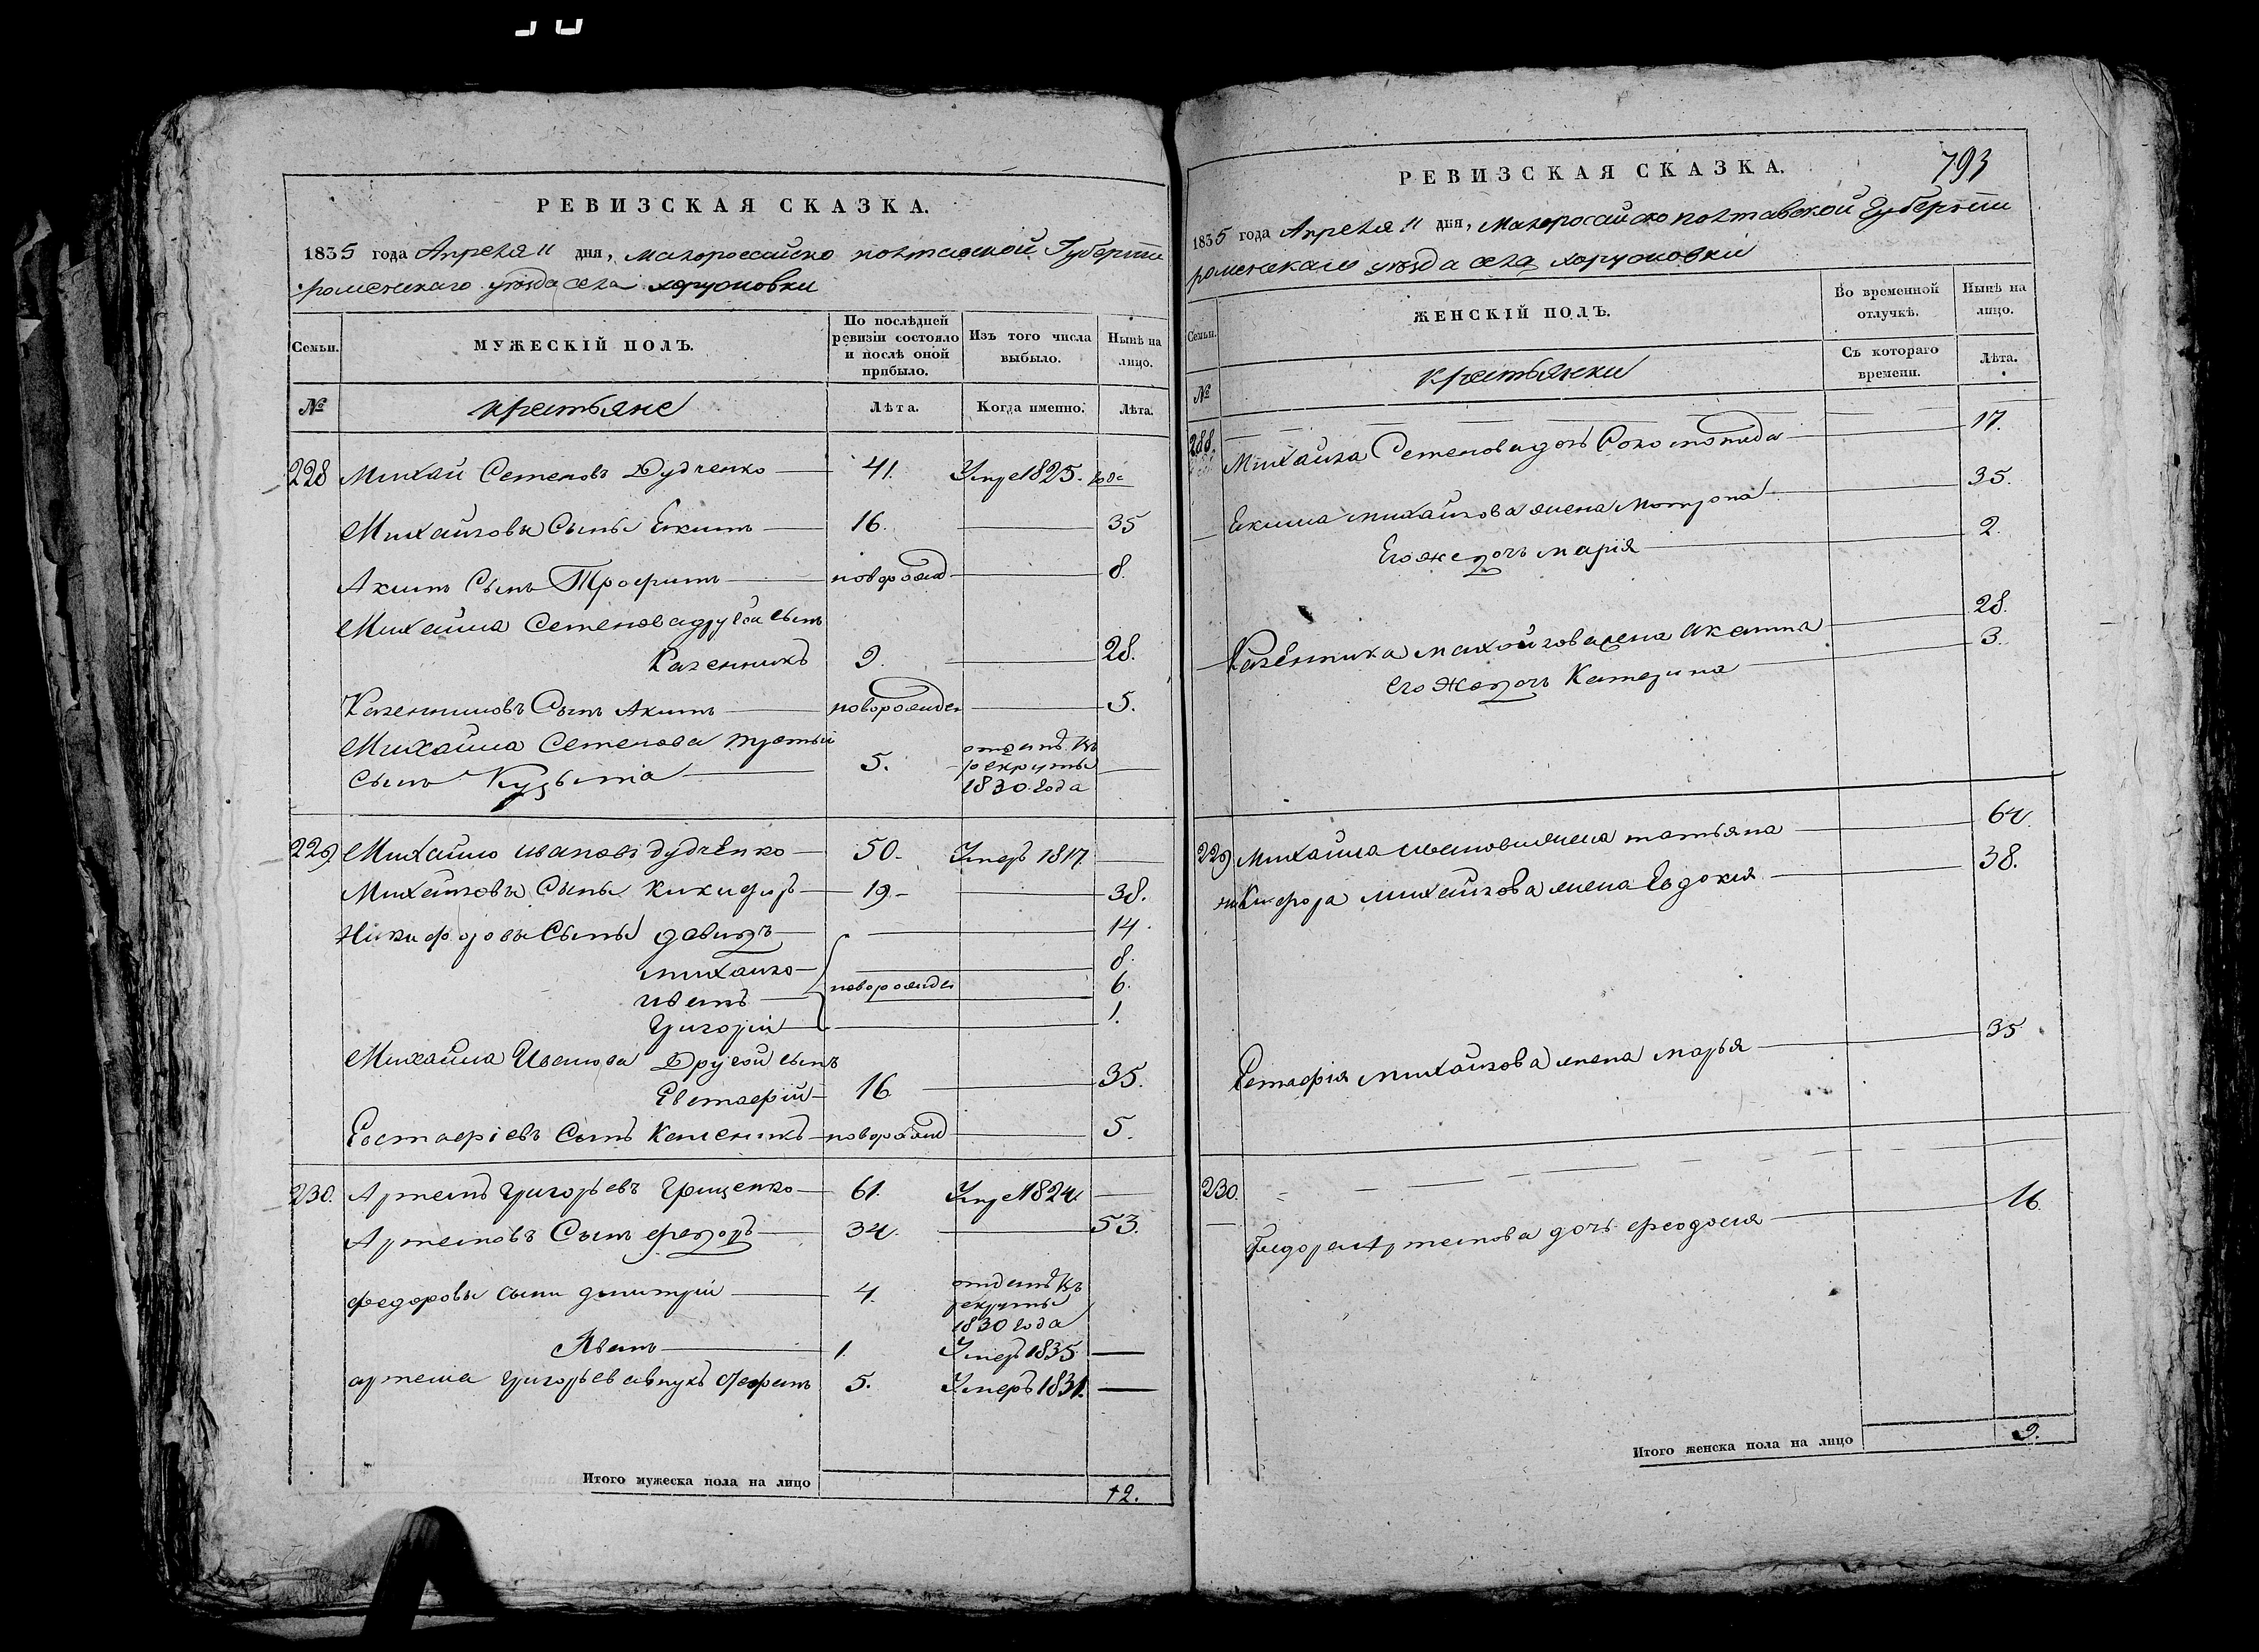 РЕВИЗСКАЯ СКАЗКА.
1835 года Апреля 11 дня, малороссийско полтавской Губернии
роменскаго уѣзда села хоружовки
Семьи. МУЖЕСКІЙ ПОЛЪ. По послѣдней ревизіи состояло и послѣ оной прибыло. Изъ того числа выбыло. Нынѣ на лицо.
№ крестьяне Лѣта. Когда именно. Лѣта.
228 Михайло Семеновъ Дудченко 41. Умре 1825.
Михайловы Сыны Екимъ 16. 35
Акимъ Сынъ Трофимъ новорожд 8.
Михайла Семенова другой сынъ
Каленникъ 9. 28.
Каленниковъ Сынъ Акимъ новорожден 5.
Михайла Семенова третый
сынъ Кузьма 5. отданъ въ рекруты 1830 года
229 Михайло Ивановъ Дудченко 50. Умеръ 1817.
Михайловы Сыны Никифоръ 19 38.
Никифоровы Сыны давидъ 14.
михайло 8.
иванъ новорожден 6.
григорій 1.
Михайла Иванова Другой сынъ
Евстафій 16 35.
Евстафіевъ Сынъ Каленикъ новорожд 5.
230. Артемъ григорьевъ Грищенко 61. Умре 1824
Артемовъ Сынъ федоръ 34. 53.
федоровы сыны димитрій 4. отданъ въ рекруты 1830 года
Иванъ 1. Умеръ 1835
артема григорьева внукъ 5. Умеръ 1831.
Итого мужеска пола на лицо 12.
793
РЕВИЗСКАЯ СКАЗКА.
1835 года Апреля 11 дня, Малоросайско полтавской Губерніи
роменскаго уѣзда села хоружовки
Семьи. ЖЕНСКІЙ ПОЛЪ. Во временной отлучкѣ. Нынѣ на лицо.
№ крестьянки Съ котораго времени. Лѣта.
288 Михайла Семенова дочь 17.
Екима михайлова жена Мотрона 35.
Его же дочь марія 2.
Каленика михайлова жена 28.
его же дочь Катерина 3.
229 Михайла Иванова жена татьяна 64.
никифора михайлова жена Евдокия 38.
Евстафія михайлова жена марья 35
230.
Федора Артемова дочь феодосия 16.
Итого женска пола на лицо 9.